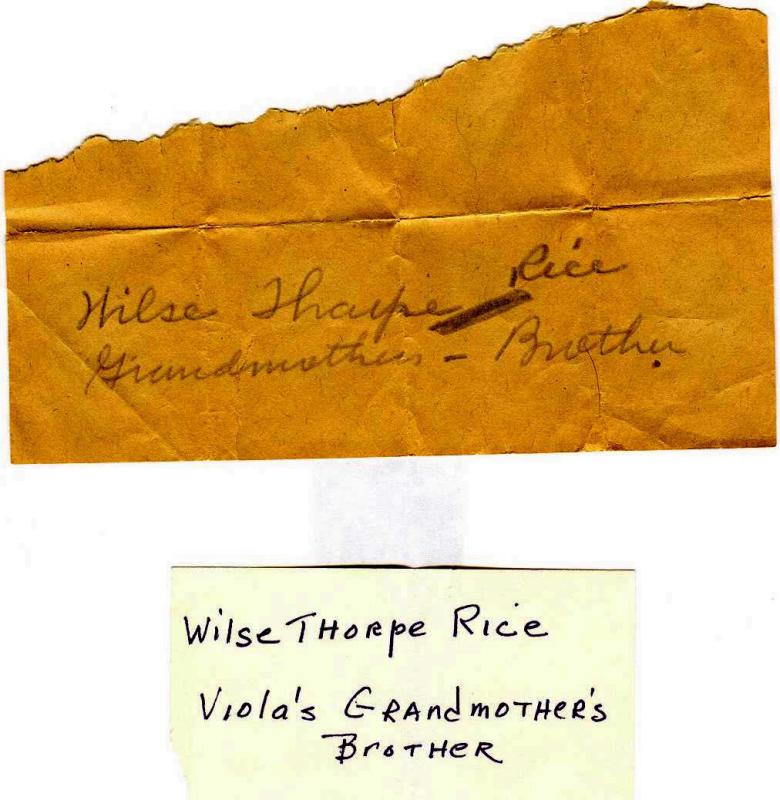 Wilse Tharpe Rice
Grandmothers - Brother
Wilse THORpe Rice
Viola's GRAndmOTHER's
BroTHER